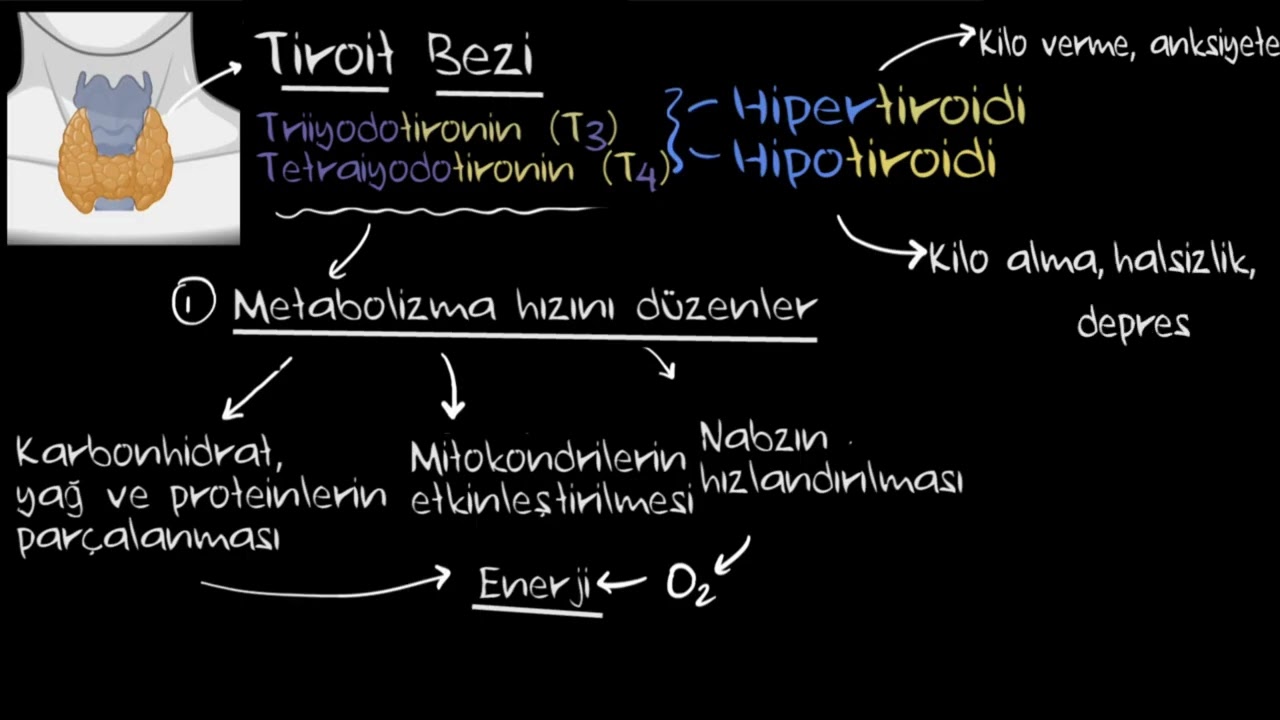 Tiroit Bezi
Triiyodotironin (T3)
Tetraiyodotironin (T4)
Hipertiroidi
Hipotiroidi
Kilo verme, anksiyete
Kilo alma, halsizlik,
depres
1 Metabolizma hızını düzenler
Karbonhidrat,
yağ ve proteinlerin
parçalanması
Mitokondrilerin
etkinleştirilmesi
Nabzın
hızlandırılması
Enerji
O2